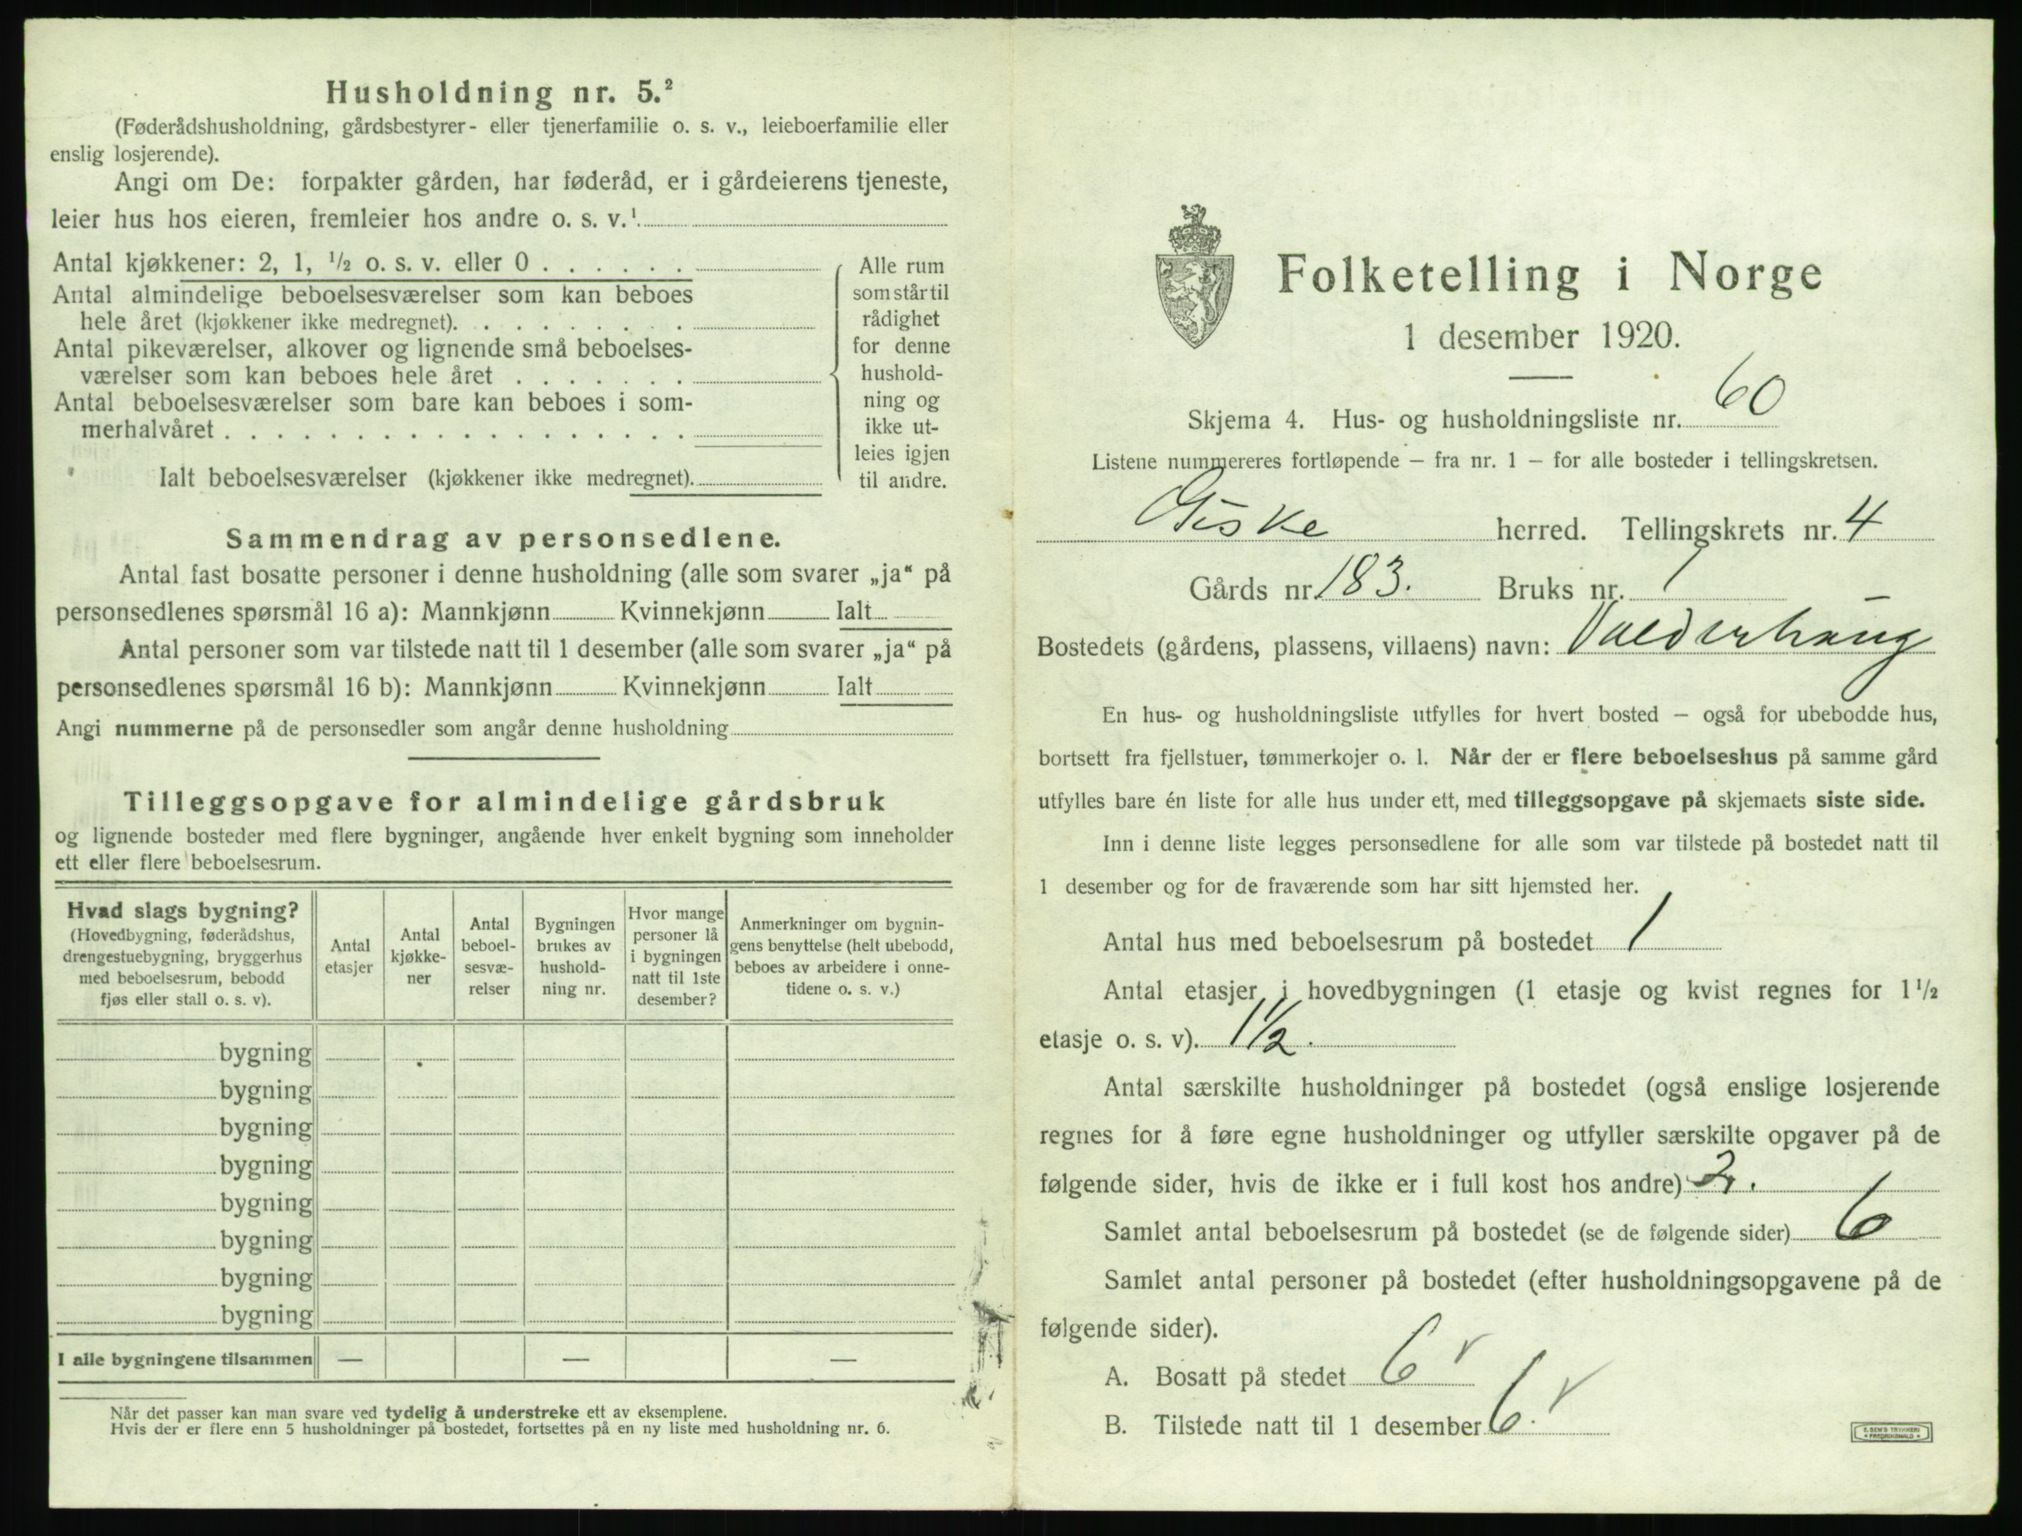 Husholdning nr. 5.²
(Føderådshusholdning, gårdsbestyrer- eller tjenerfamilie o. s. v., leieboerfamilie eller
enslig losjerende).
Angi om De: forpakter gården, har føderåd, er i gårdeierens tjeneste,
leier hus hos eieren, fremleier hos andre o. s. v.¹
Antal kjøkkener: 2, 1, ½ o. s. v. eller 0 . . . . . .
Antal almindelige beboelsesværelser som kan beboes
hele året (kjøkkener ikke medregnet). . . . . . . . .
Antal pikeværelser, alkover og lignende små beboelses-
værelser som kan beboes hele året . . . . . . .
Antal beboelsesværelser som bare kan beboes i som-
merhalvåret . . . . . . . . . . . . . . . . . .
Ialt beboelsesværelser (kjøkkener ikke medregnet).
Alle rum
som står til
rådighet
for denne
hushold-
ning og
ikke ut-
leies igjen
til andre.
Sammendrag av personsedlene.
Antal fast bosatte personer i denne husholdning (alle som svarer „ja“ på
personsedlenes spørsmål 16 a): Mannkjønn Kvinnekjønn Ialt
Antal personer som var tilstede natt til 1 desember (alle som svarer „ja“ på
personsedlenes spørsmål 16 b): Mannkjønn Kvinnekjønn Ialt
Angi nummerne på de personsedler som angår denne husholdning
Tilleggsopgave for almindelige gårdsbruk
og lignende bosteder med flere bygninger, angående hver enkelt bygning som inneholder
ett eller flere beboelsesrum.
Hvad slags bygning?
(Hovedbygning, føderådshus,
drengestuebygning, bryggerhus
med beboelsesrum, bebodd
fjøs eller stall o. s. v).
Antal
etasjer
Antal
kjøkke-
ner
Antal
beboel-
sesvæ-
relser
Bygningen
brukes av
hushold-
ning nr.
Hvor mange
personer lå
i bygningen
natt til 1ste
desember?
Anmerkninger om bygnin-
gens benyttelse (helt ubebodd,
beboes av arbeidere i onne-
tidene o. s. v.)
bygning
bygning
bygning
bygning
bygning
bygning
bygning
bygning
I alle bygningene tilsammen — — —
Når det passer kan man svare ved tydelig å understreke ett av eksemplene.
Hvis der er flere enn 5 husholdninger på bostedet, fortsettes på en ny liste med husholdning nr. 6.
Folketelling i Norge
1 desember 1920.
Skjema 4. Hus- og husholdningsliste nr. 60
Listene nummereres fortløpende – fra nr. 1 – for alle bosteder i tellingskretsen.
Giske herred. Tellingskrets nr. 4
Gårds nr. 183. Bruks nr. 1
Bostedets (gårdens, plassens, villaens) navn: Valderhaug
En hus- og husholdningsliste utfylles for hvert bosted – også for ubebodde hus,
bortsett fra fjellstuer, tømmerkojer o. l. Når der er flere beboelseshus på samme gård
utfylles bare én liste for alle hus under ett, med tilleggsopgave på skjemaets siste side.
Inn i denne liste legges personsedlene for alle som var tilstede på bostedet natt til
1 desember og for de fraværende som har sitt hjemsted her.
Antal hus med beboelsesrum på bostedet 1
Antal etasjer i hovedbygningen (1 etasje og kvist regnes for 1½
etasje o. s. v). 1½.
Antal særskilte husholdninger på bostedet (også enslige losjerende
regnes for å føre egne husholdninger og utfyller særskilte opgaver på de
følgende sider, hvis de ikke er i full kost hos andre)
Samlet antal beboelsesrum på bostedet (se de følgende sider) 6
Samlet antal personer på bostedet (efter husholdningsopgavene på de
følgende sider).
A. Bosatt på stedet 6
B. Tilstede natt til 1 desember 6.